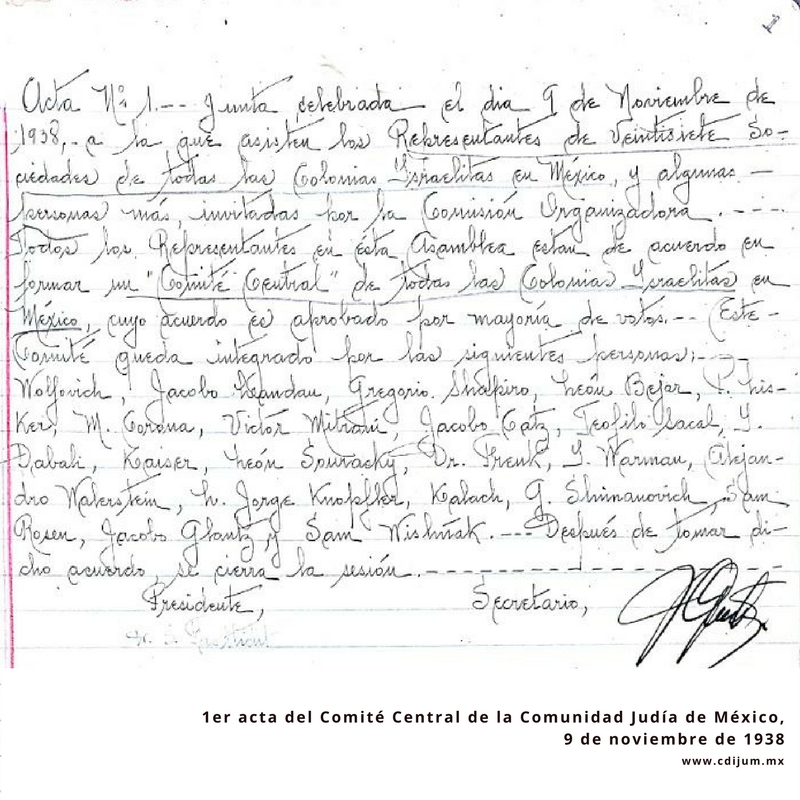 Acta Nº 1.-- Junta celebrada el dia 9 de Noviembre de
1938,- a la que asisten los Representantes de Veintisiete So-
ciedades de todas las Colonias Israelitas en México, y algunas -
personas más, invitadas por la Comisión Organizadora .- - --
Todos los Representantes en ésta Asamblea están de acuerdo en
formar un "Comité Central" de todas las Colonias Israelitas en
México, cuyo acuerdo es aprobado por mayoría de votos.-- Este-
Comité queda integrado por las siguientes personas;- --
Wolfovich, Jacobo Landau, Gregorio Shapiro, León Bejar, P. Lis-
Ker, M. Corona, Victor Mitrani, Jacobo Catz, Teofilo Sacal, Y.
Dabali, Kaiser, León Souracky, Dr. Frenk, Y. Warman, Alejan-
dro Waterstein, L. Jorge Knopfler, Kalach, G. Shinanovich, Sam
Rosen, Jacobo Glantz y Sam Wishñak. --- Después de tomar di-
cho acuerdo, se cierra la sesión.- - - - - - - - - - - - - - - -
Presidente, Secretario,
1er acta del Comité Central de la Comunidad Judía de México,
9 de noviembre de 1938
www.cdijum.mx